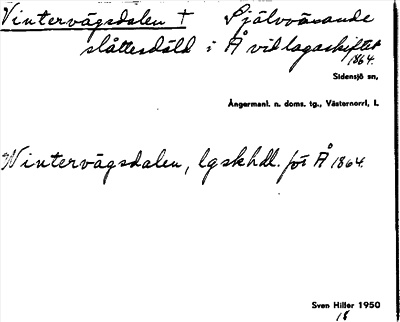 Vintervägsdalen † Självväxande
slåttesdäld i Å vid lagaskiftet
1864.
Sidensjö sn,
Ångermanl. n. doms. tg., Västernorrl, l.
Wintervägsdalen, lgskhdl. för Å 1864.
Sven Hiller 1950
18